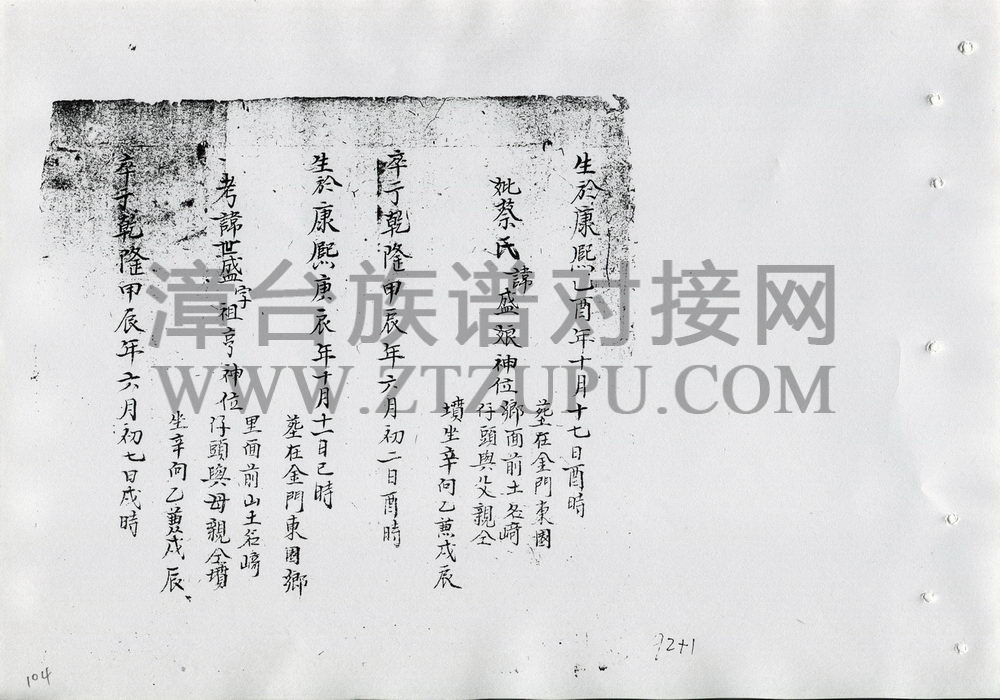 生於康熙乙酉年十月十七日酉時
妣蔡氏諱盛娘神位
葬在金門東園
鄉面前土名崎
仔頭與父親仝
墳坐辛向乙兼戌辰
卒于乾隆甲辰年六月初二日酉時
生於康熙庚辰年十月十一日巳時
葬在金門東園鄉
考諱世盛字祖亨神位
里面前山土名崎
仔頭與母親仝墳
坐辛向乙兼戌辰
卒于乾隆甲辰年六月初七日戌時
漳台族谱对接网
WWW.ZTZUPU.COM
104
92+1